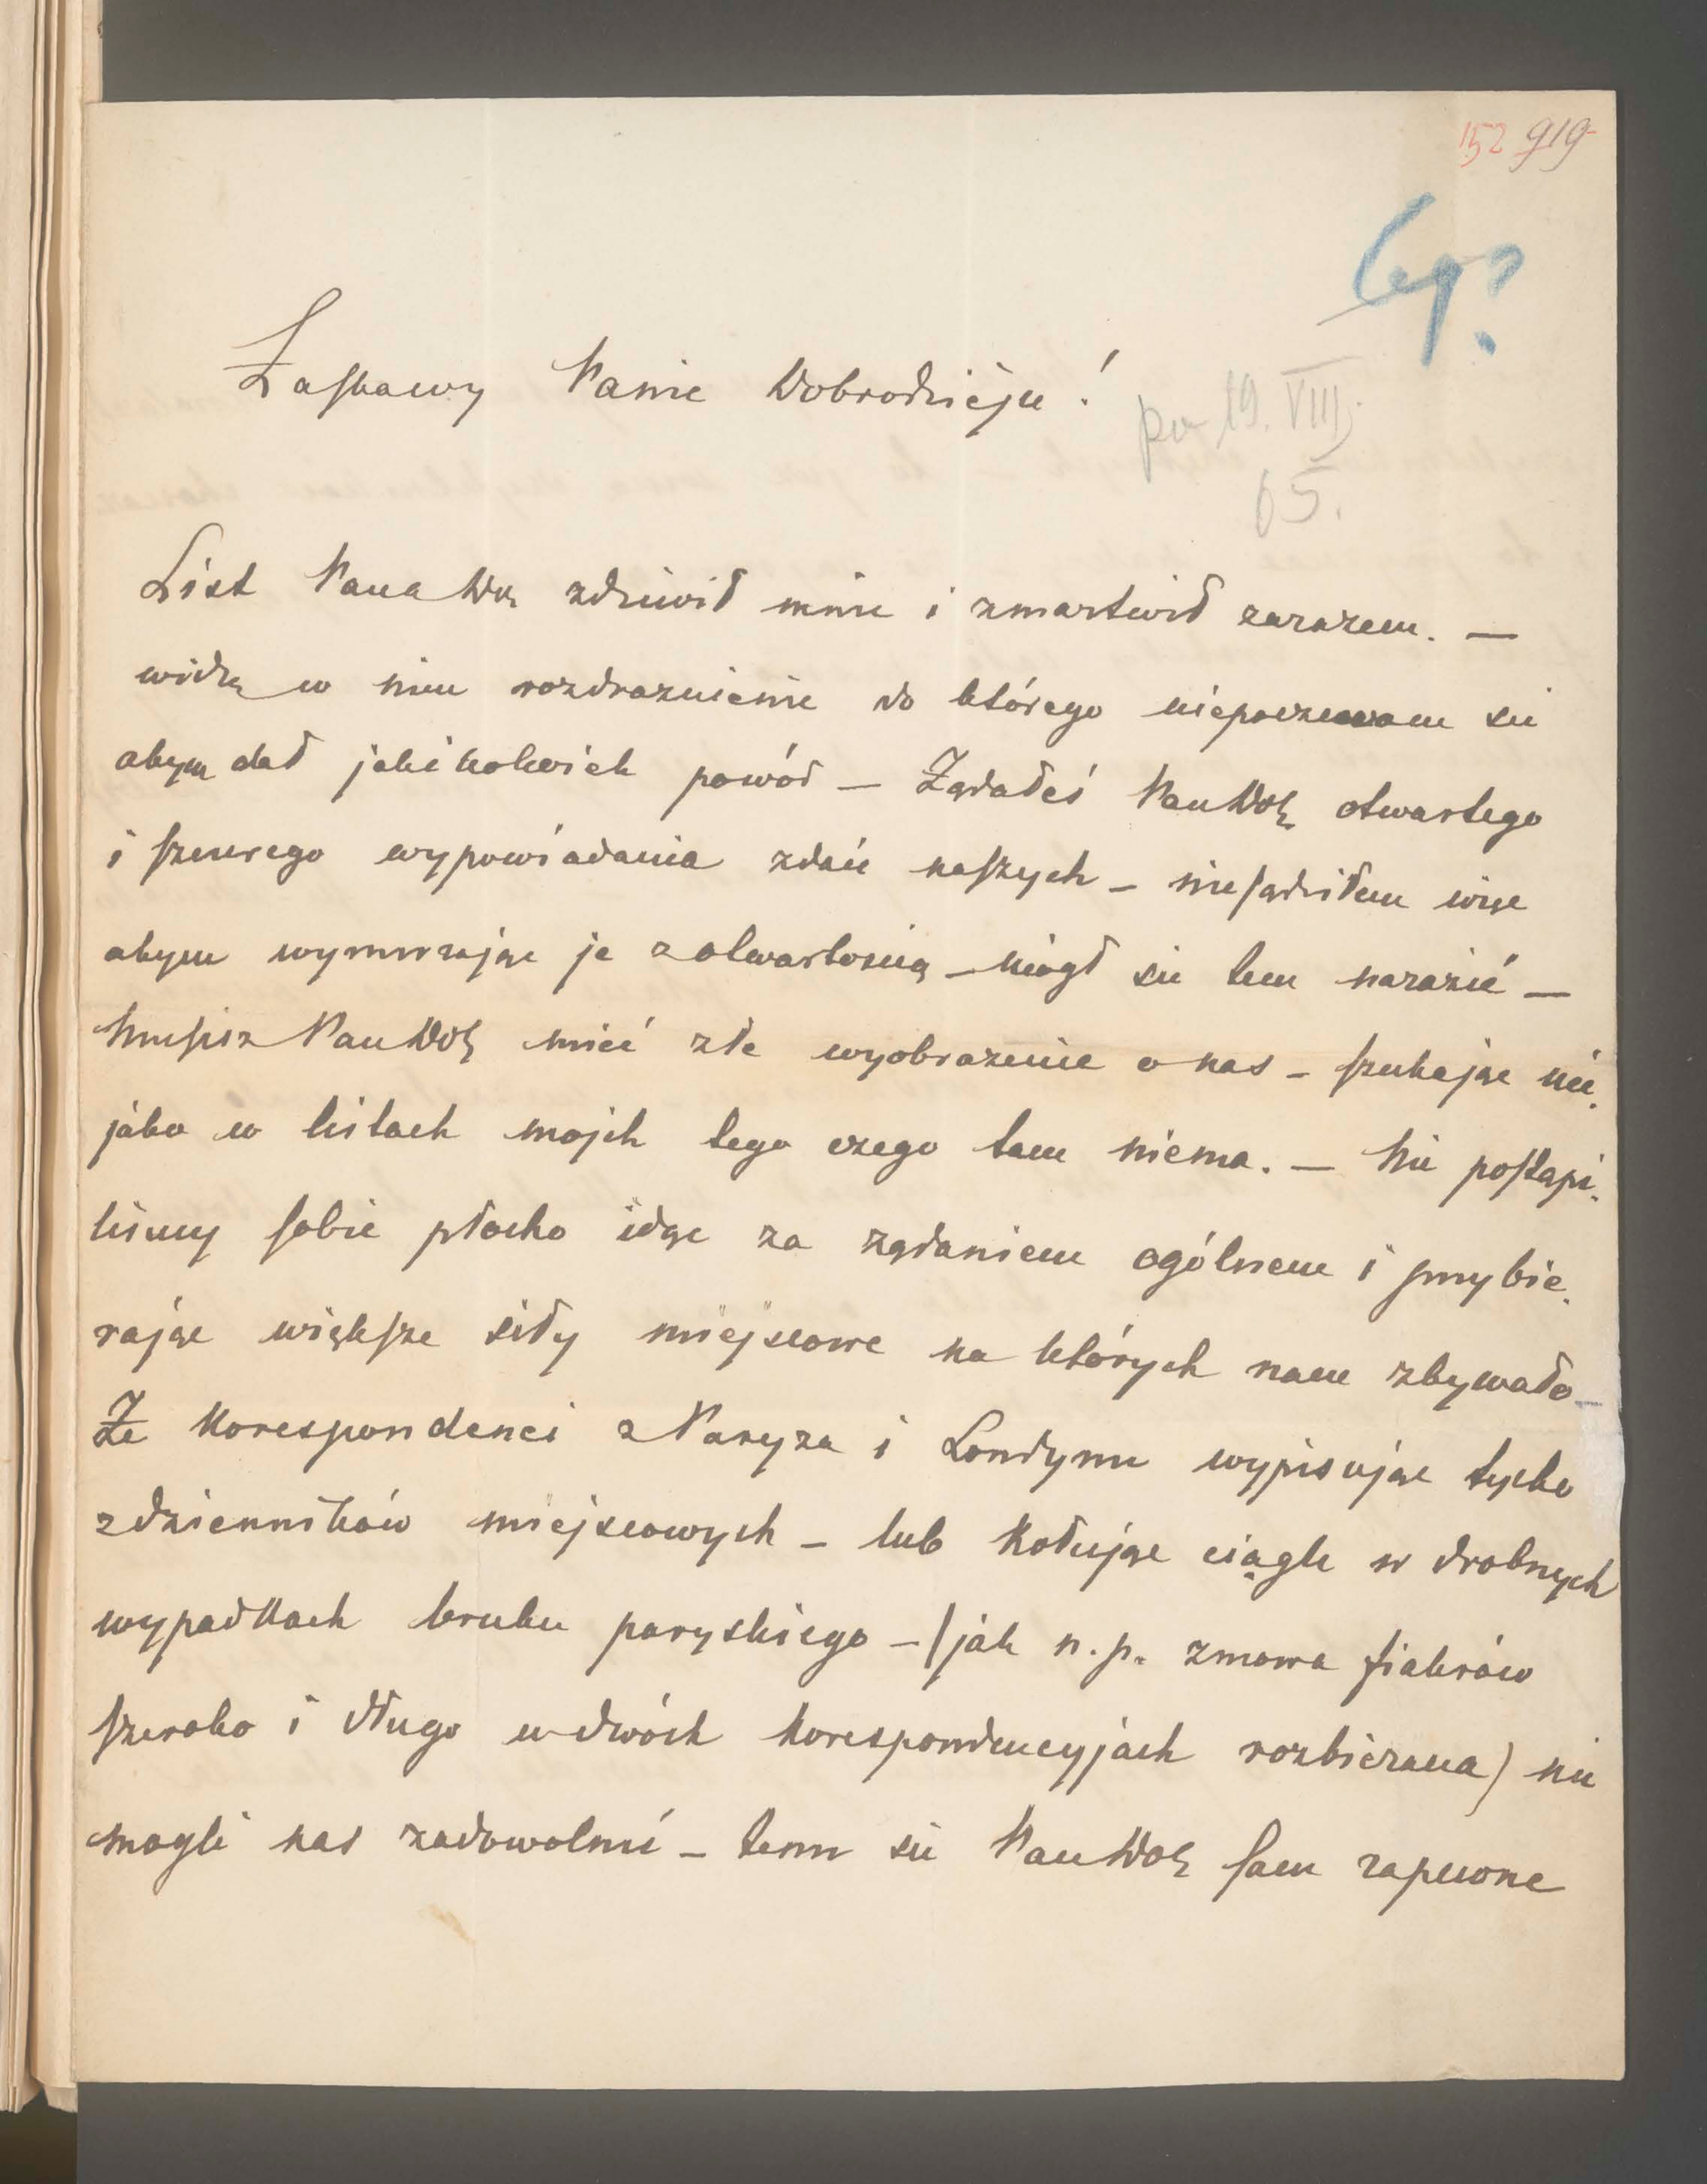 152 919
Łaskawy Panie Dobrodzieju!
po 19. VIII.
65.
List Pana Do. zdziwił mnie i zmartwił zarazem. —
widzę w nim rozdraznienie do którego niepoczuwam się
abym dał jakikolwiek powód — Żądałeś Pan Dob. otwartego
i szczerego wypowiadania zdań naszych — niesądziłem więc
abym wymurzając je z otwartością — mógł się tem narazić —
Musisz Pan Dob. mieć złe wyobrazenie o nas — szukając nie-
jako w listach mojch tego czego tam niema. — Nie postąpi-
liśmy sobie płocho idąc za ządaniem ogólnem i przybie-
rając większe siły miejscowe na których nam zbywało —
Że korespondenci z Paryza i Londynu wypisując tylko
z dzienników miejscowych — lub kołując ciągle w drobnych
wypadkach bruku paryskiego — (jak n.p. zmowa fiakrów
szeroko i długo w dwóch korespondencyjach rozbierana) nie
mogli nas zadowolnić — temu się Pan Dob. sam zapewne